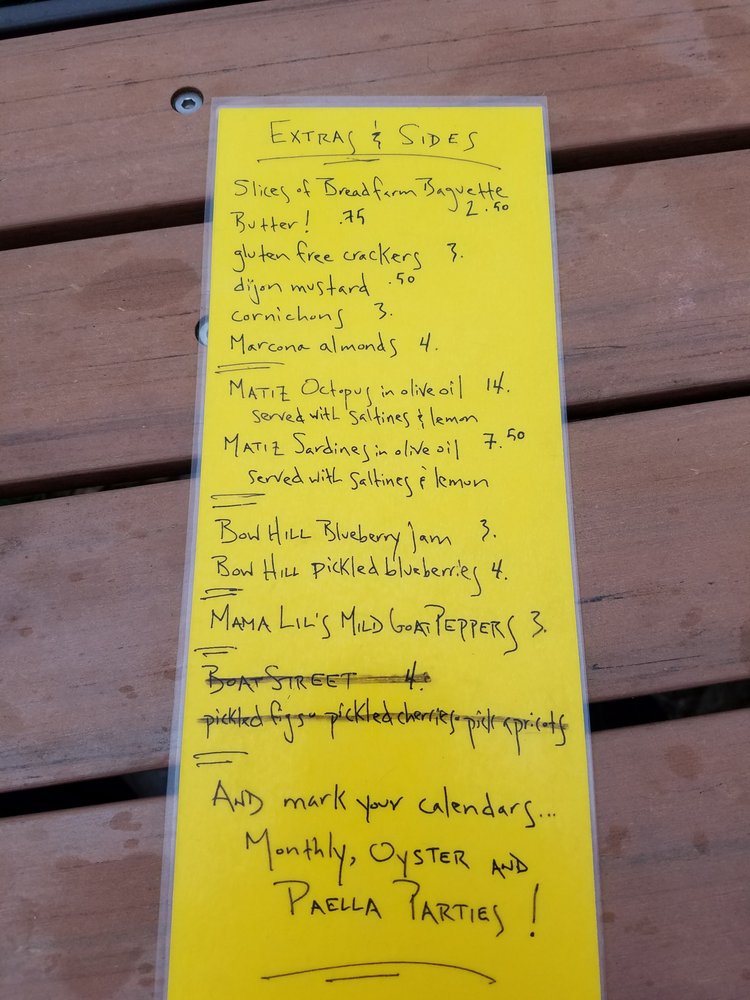 EXTRAS & SIDES
Slices of Breadfarm Baguette
2.50
Butter! .75
gluten free crackers 3.
dijon mustard .50
cornichons 3.
Marcona almonds 4.
MATIZ Octopus in olive oil 14.
served with saltines & lemon
MATIZ Sardines in olive oil 7.50
served with saltines & lemon
BOW HILL Blueberry jam 3.
BOW HILL pickled blueberries 4.
MAMA LIL'S MILD GOAT PEPPERS 3.
BOAT STREET 4.
pickled figs - pickled cherries - pick apricots
AND mark your calendars...
Monthly, OYSTER AND
PAELLA PARTIES!